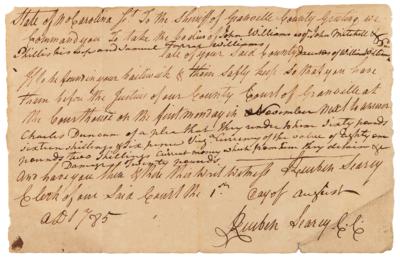 State of No Carolina Sct. To the Sheriff of Granville County Greeting we
Command you to take the bodies of John Williams John Mitchell &
Phillis his and Samuel Williams
late of your Said County
If to be found in your bailiwick & them Safely keep So that you have
them before the Justices of our County Court of Granville at
the Courthouse on the first monday in November Next to answer
Charles Duncan of a plea that they render to him Sixty pounds
Sixteen Shillings & Six pence of the value of Eighty one
pounds two Shillings Current money which from him they detain &c
Damage Twenty pounds
And have you then & there this Writ Witness Reuben Searcy
Clerk of our Said Court the 1st day of August
AD 1785
Reuben Searcy C.C.